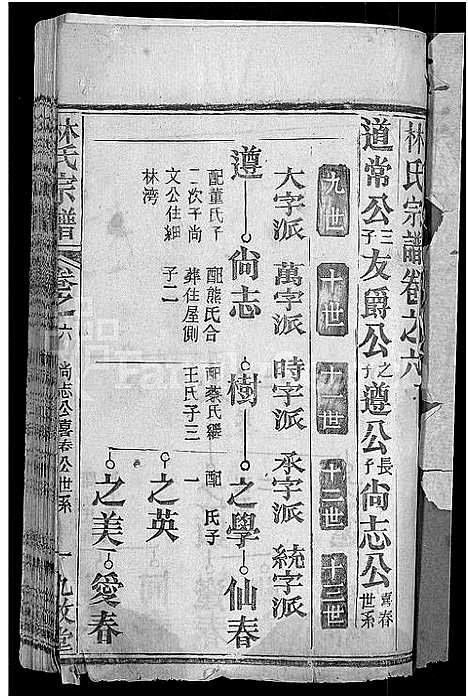 林氏宗譜卷之六
道常公三子友爵公之子遵公長子尚志公喜春世系
九世 十世 十一世 十二世 十三世
大字派 萬字派 時字派 承字派 統字派
遵 尚志 樹 之學 仙春
配董氏子 配熊氏合 配蔡氏繼 配 氏子
二次子尚 葬住屋側 王氏子三 一
文公住細 子二
林湾
之英
之美 愛春
林氏宗譜 卷之六 尚志公喜春公世系 一